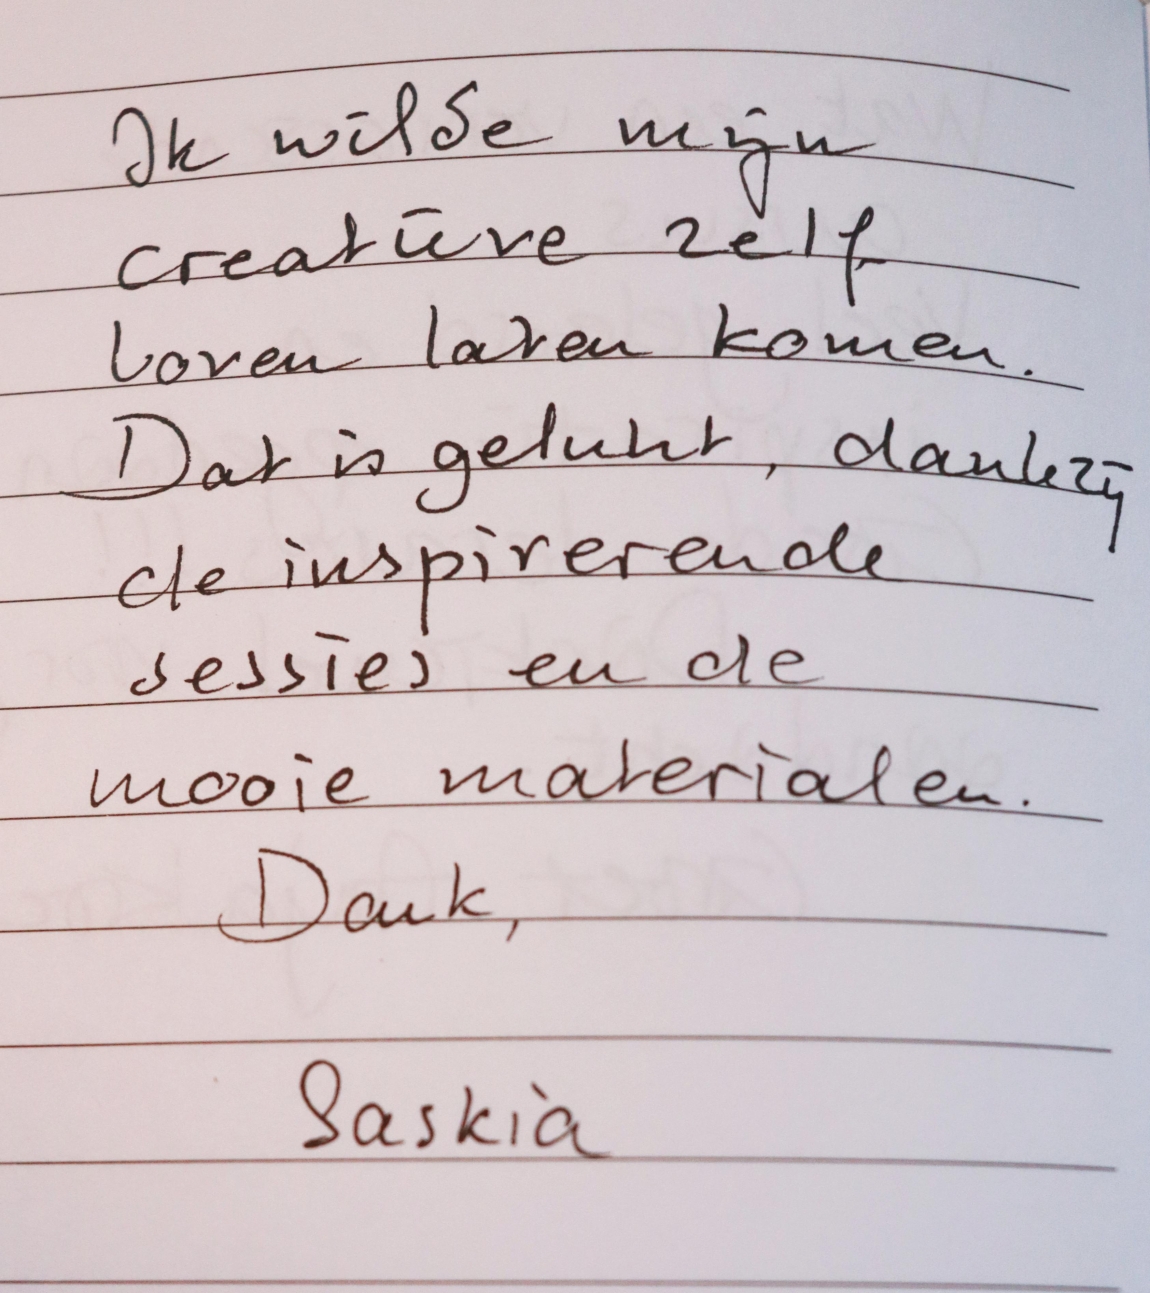 Ik wilde mijn
creatieve zelf
boven laten komen.
Dat is gelukt, dankzij
de inspirerende
sessies en de
mooie materialen.
Dank,
Saskia